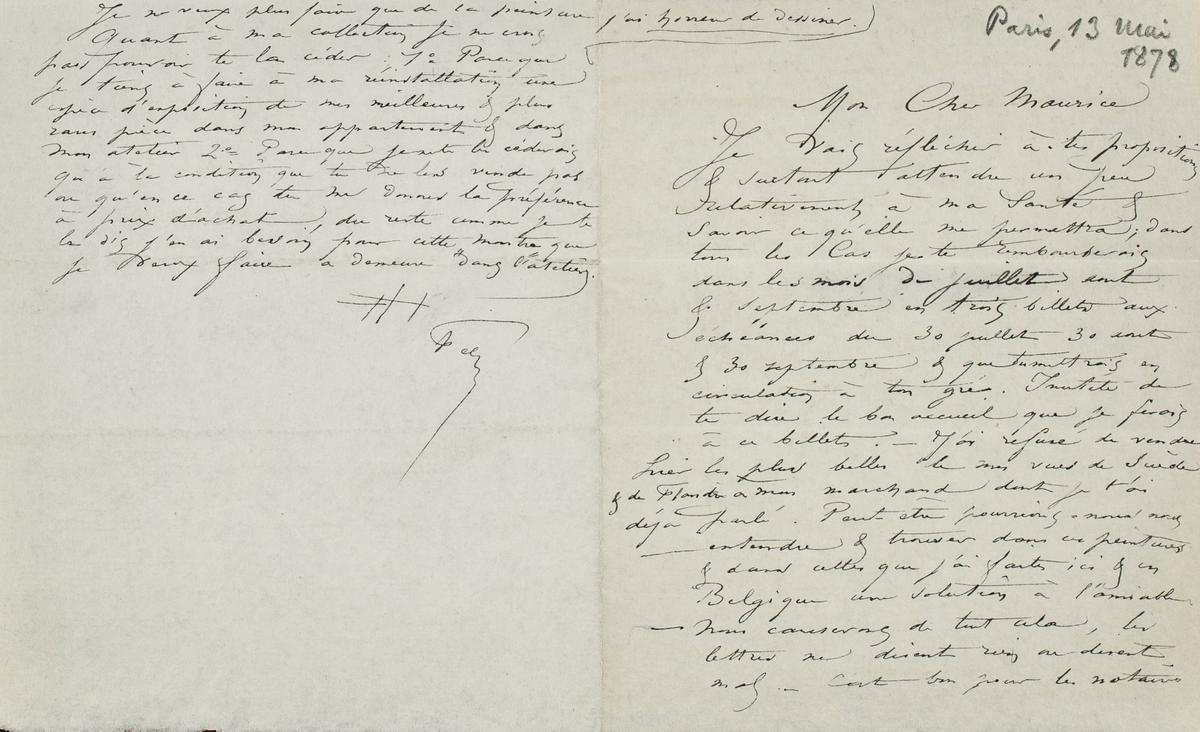 Paris, 13 Mai
1878
Mon Cher Maurice
Je Vais réfléchir à tes propositions
& surtout attendre un peu
Relativement à ma Santé &
Savoir ce qu'elle me permettra; dans
tous les Cas je te rembourserais
dans les mois de juillet aout
& septembre en trois billets aux
échéances du 30 juillet 30 aout
& 30 septembre & que tu mettrais en
circulation à ton gré. Inutile de
te dire le bon accueil que je ferais
à ces billets. — J'ai refusé de vendre
hier les plus belles de mes vues de Suède
& de Flandre à mon marchand dont je t'ai
déjà parlé. Peut-être pourrions-nous nous
entendre & trouver dans ces peintures
& dans celles que j'ai faites ici & en
Belgique une solution à l'amiable.
— Nous causerons de tout cela, les
lettres ne disent rien ou disent
mal. — C'est bon pour les notaires
Je ne veux plus faire que de la peinture j'ai horreur de dessiner.)
Quant à ma collection je ne crois
pas pouvoir te la céder. 1o Parceque
je tiens à faire à ma réinstallation une
espèce d'exposition de mes meilleures & plus
rares pièces dans mon appartement & dans
mon atelier 2o Parceque je ne te la céderais
qu'à la condition que tu ne les vende pas
ou qu'en ce cas tu me donnes la préférence
à prix d'achat, du reste comme je te
le dis j'en ai besoin pour cette montre que
je Veux faire "à demeure" dans l'atelier.
Fély